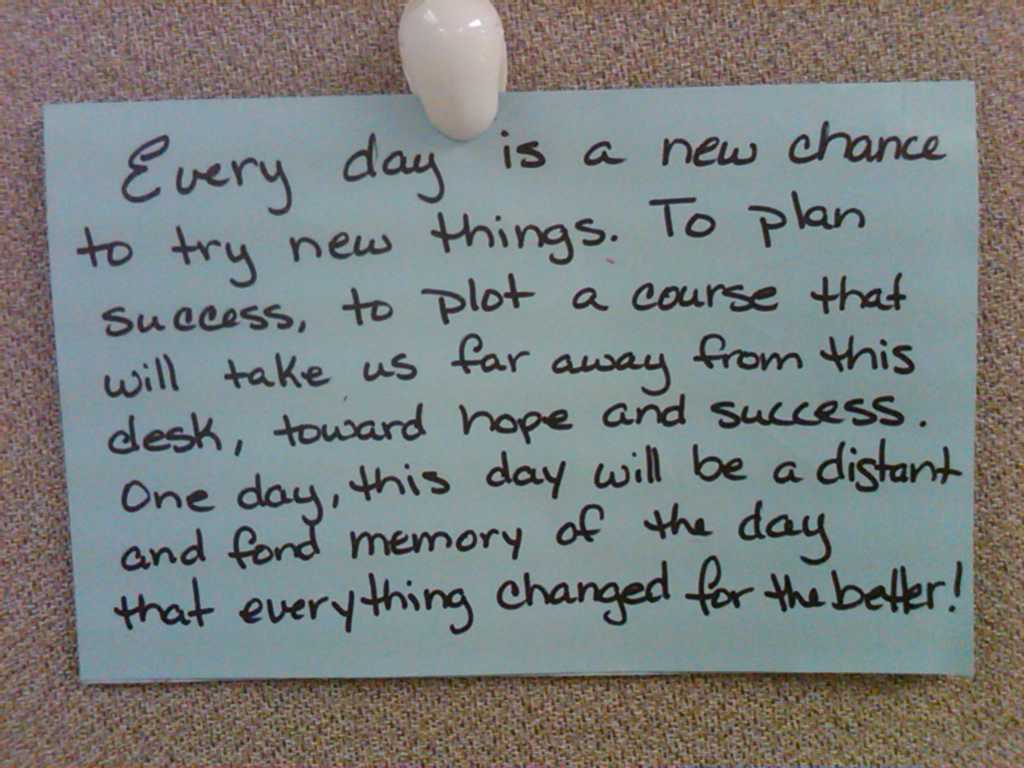 Every day is a new chance
to try new things. To plan
success, to plot a course that
will take us far away from this
desk, toward hope and success.
One day, this day will be a distant
and fond memory of the day
that everything changed for the better!